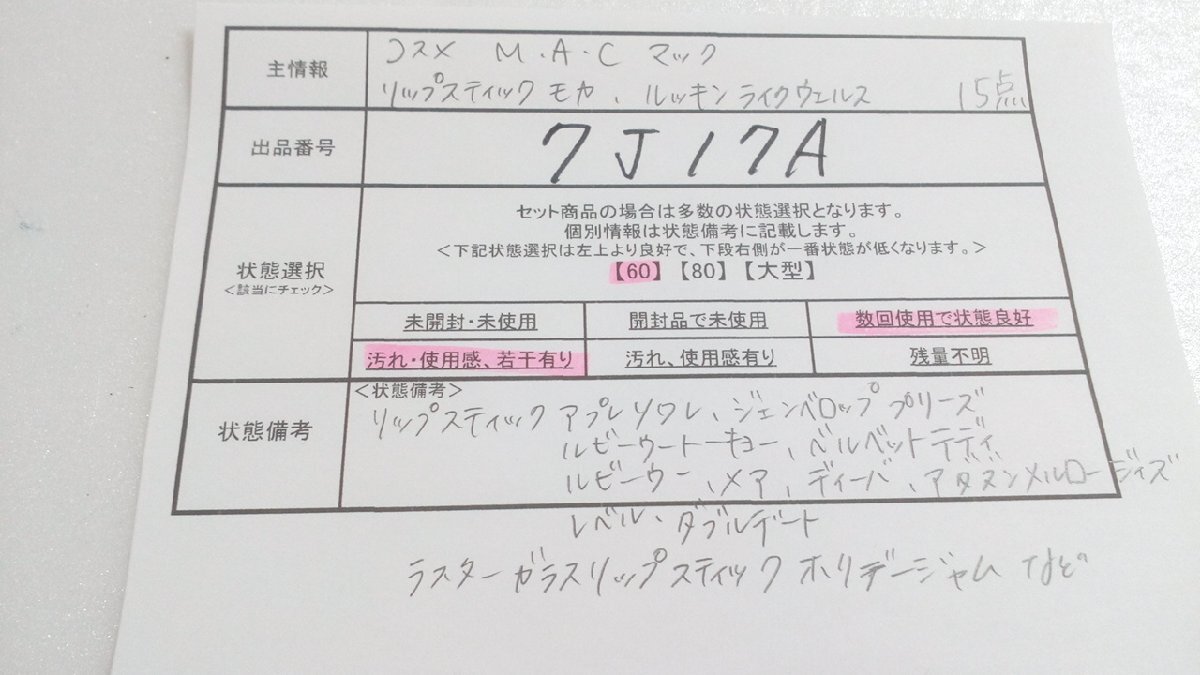 主情報
コスメ M・A・C マック
リップスティック モカ、ルッキンライクウェルス 15点
出品番号
7J17A
状態選択
<該当にチェック>
セット商品の場合は多数の状態選択となります。
個別情報は状態備考に記載します。
<下記状態選択は左上より良好で、下段右側が一番状態が低くなります。>
【60】【80】【大型】
未開封・未使用 開封品で未使用 数回使用で状態良好
汚れ・使用感、若干有り 汚れ、使用感有り 残量不明
状態備考
<状態備考>
リップスティック アプレソワレ、ジェンベロップ プリーズ
ルビーウートーキョー、ベルベットテディ
ルビーウー、メア、ディーバ、アダズンメルローディズ
レベル、ダブルデート
ラスターガラスリップスティック ホリデージャム など